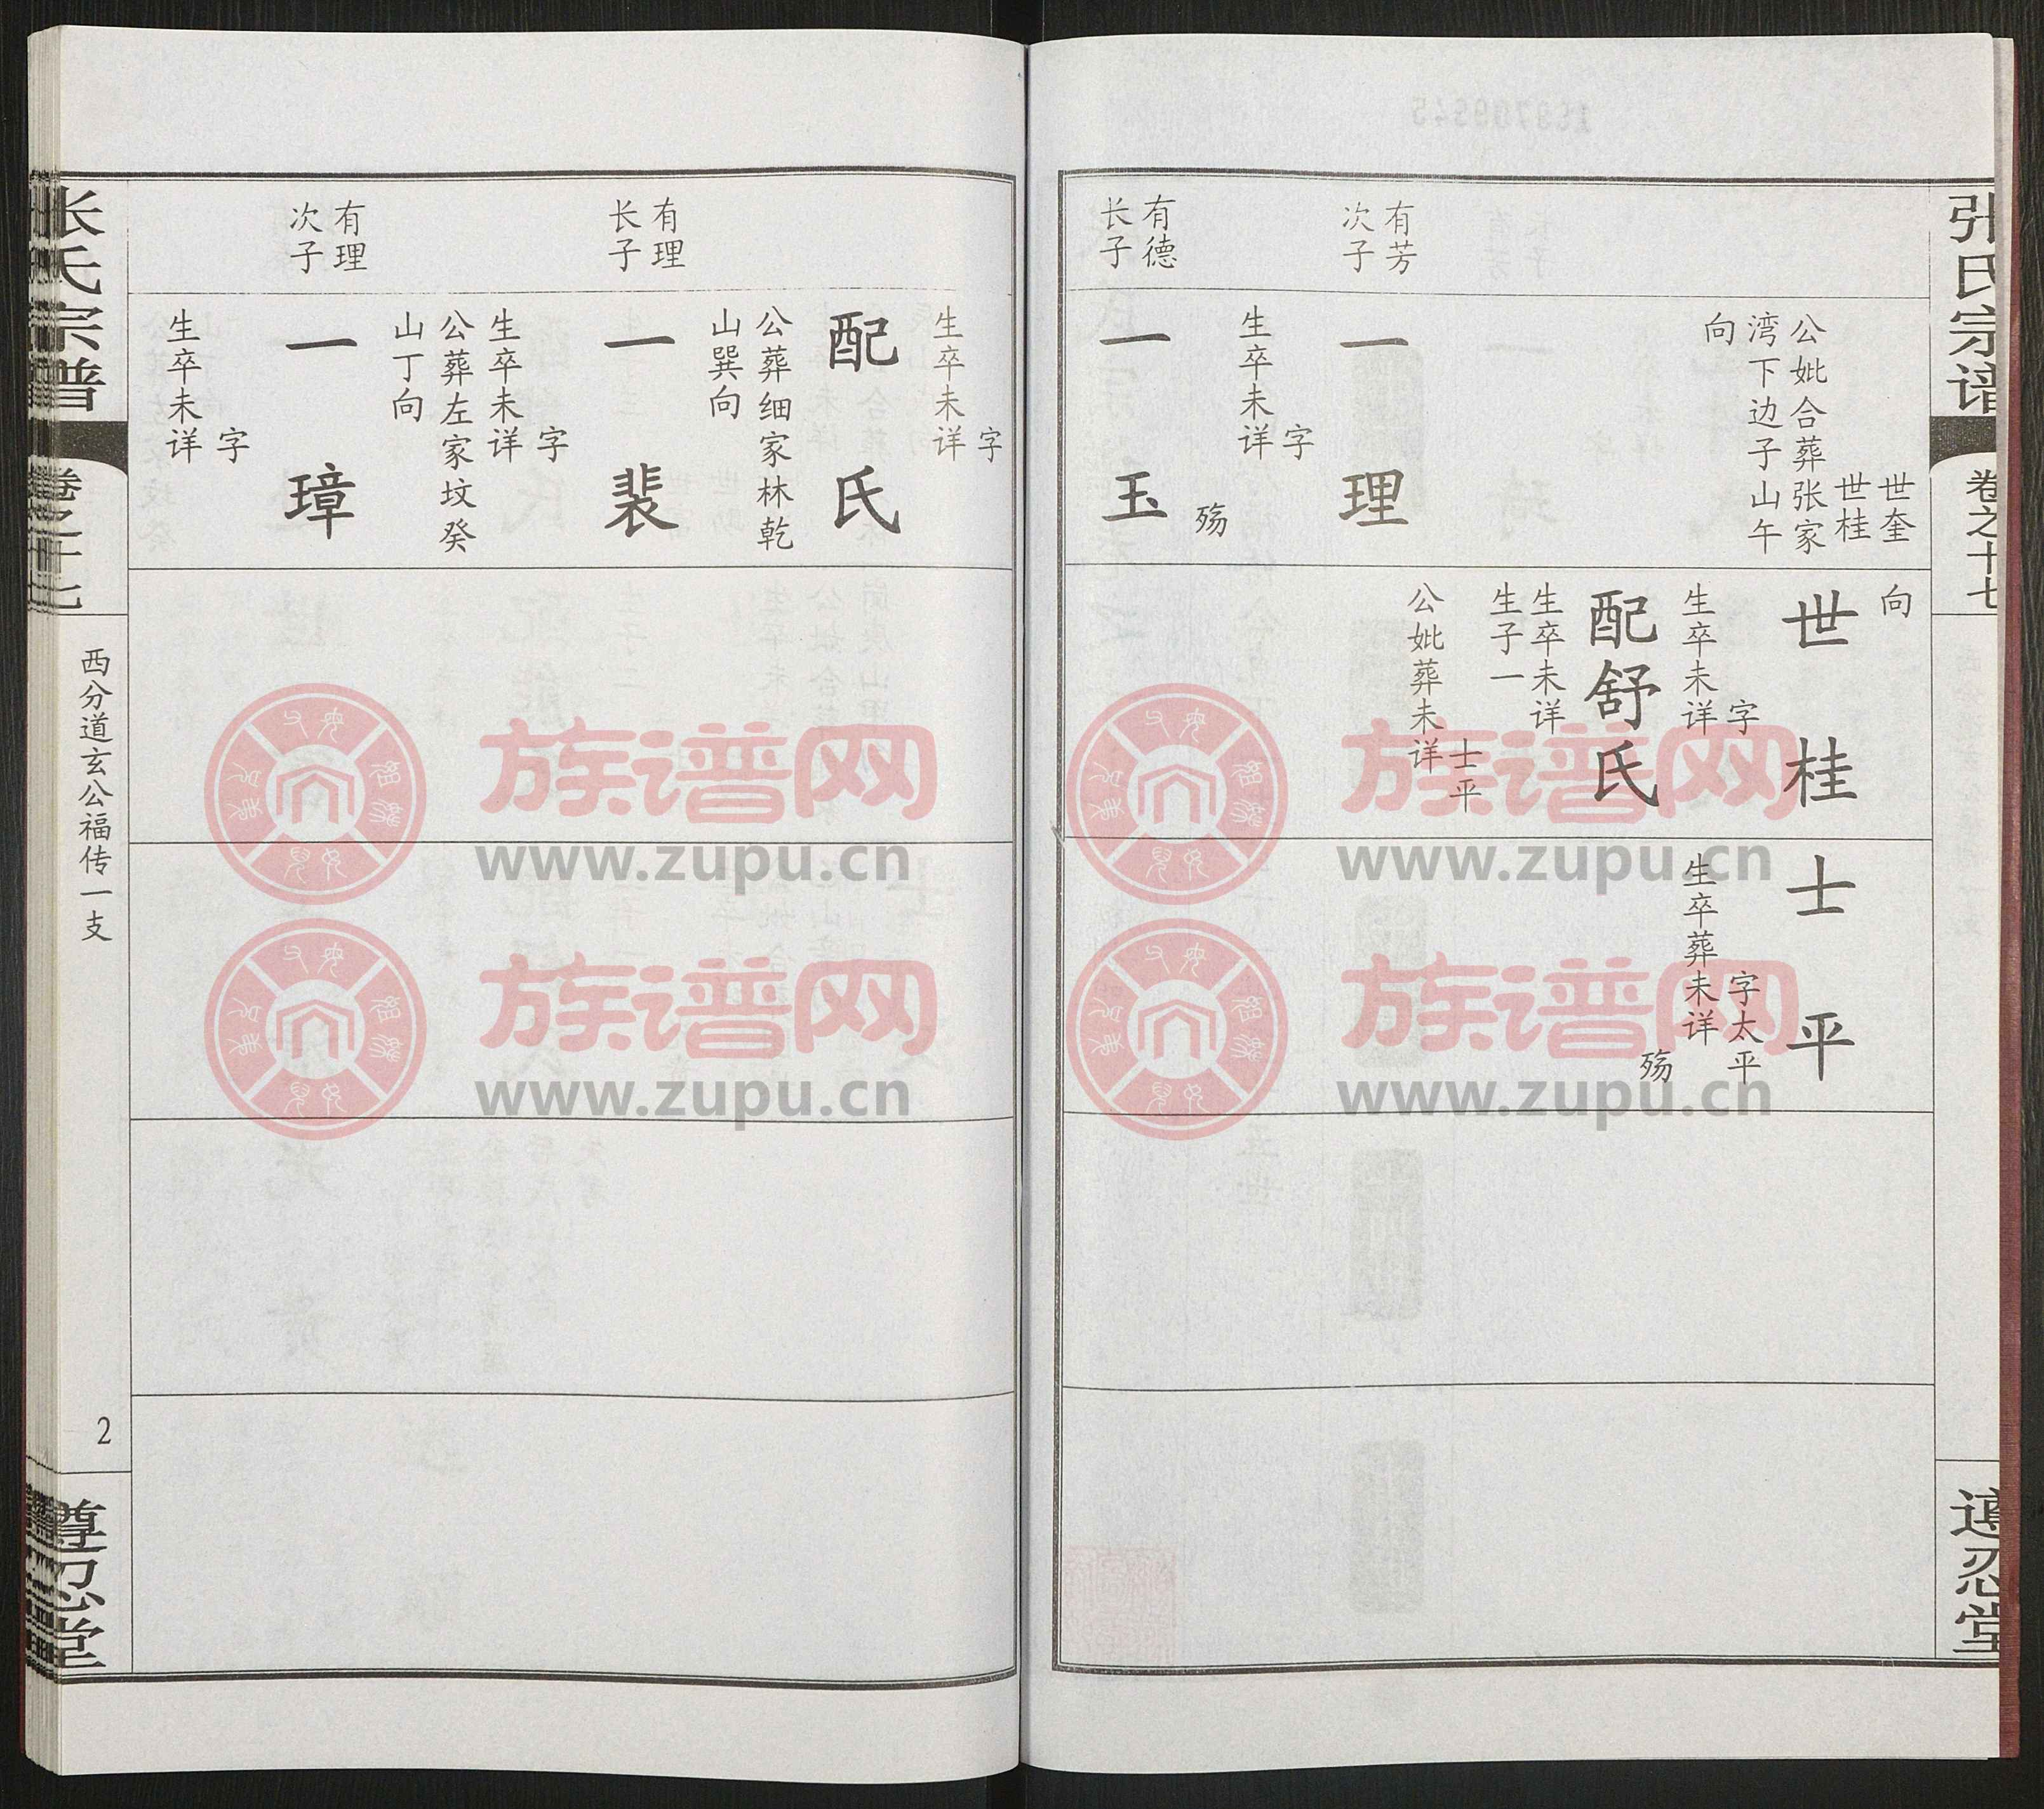 张氏宗谱
卷之十七
遵忍堂
世奎
世桂
公妣合葬张家
湾下边子山午
向
有芳
次子
一理
字
生卒未详
殇
有德
长子
一玉
向
世桂
字
生卒未详
配舒氏
生卒未详
生子一
士平
公妣葬未详
士平
字太平
生卒葬未详
殇
字
生卒未详
配氏
公葬细家林乾
山巽向
有理
长子
一裴
字
生卒未详
公葬左家坟癸
山丁向
有理
次子
一璋
字
生卒未详
张氏宗谱
卷之十七
西分道玄公福传一支
2
遵忍堂
族谱网
www.zupu.cn
族谱网
www.zupu.cn
族谱网
www.zupu.cn
族谱网
www.zupu.cn